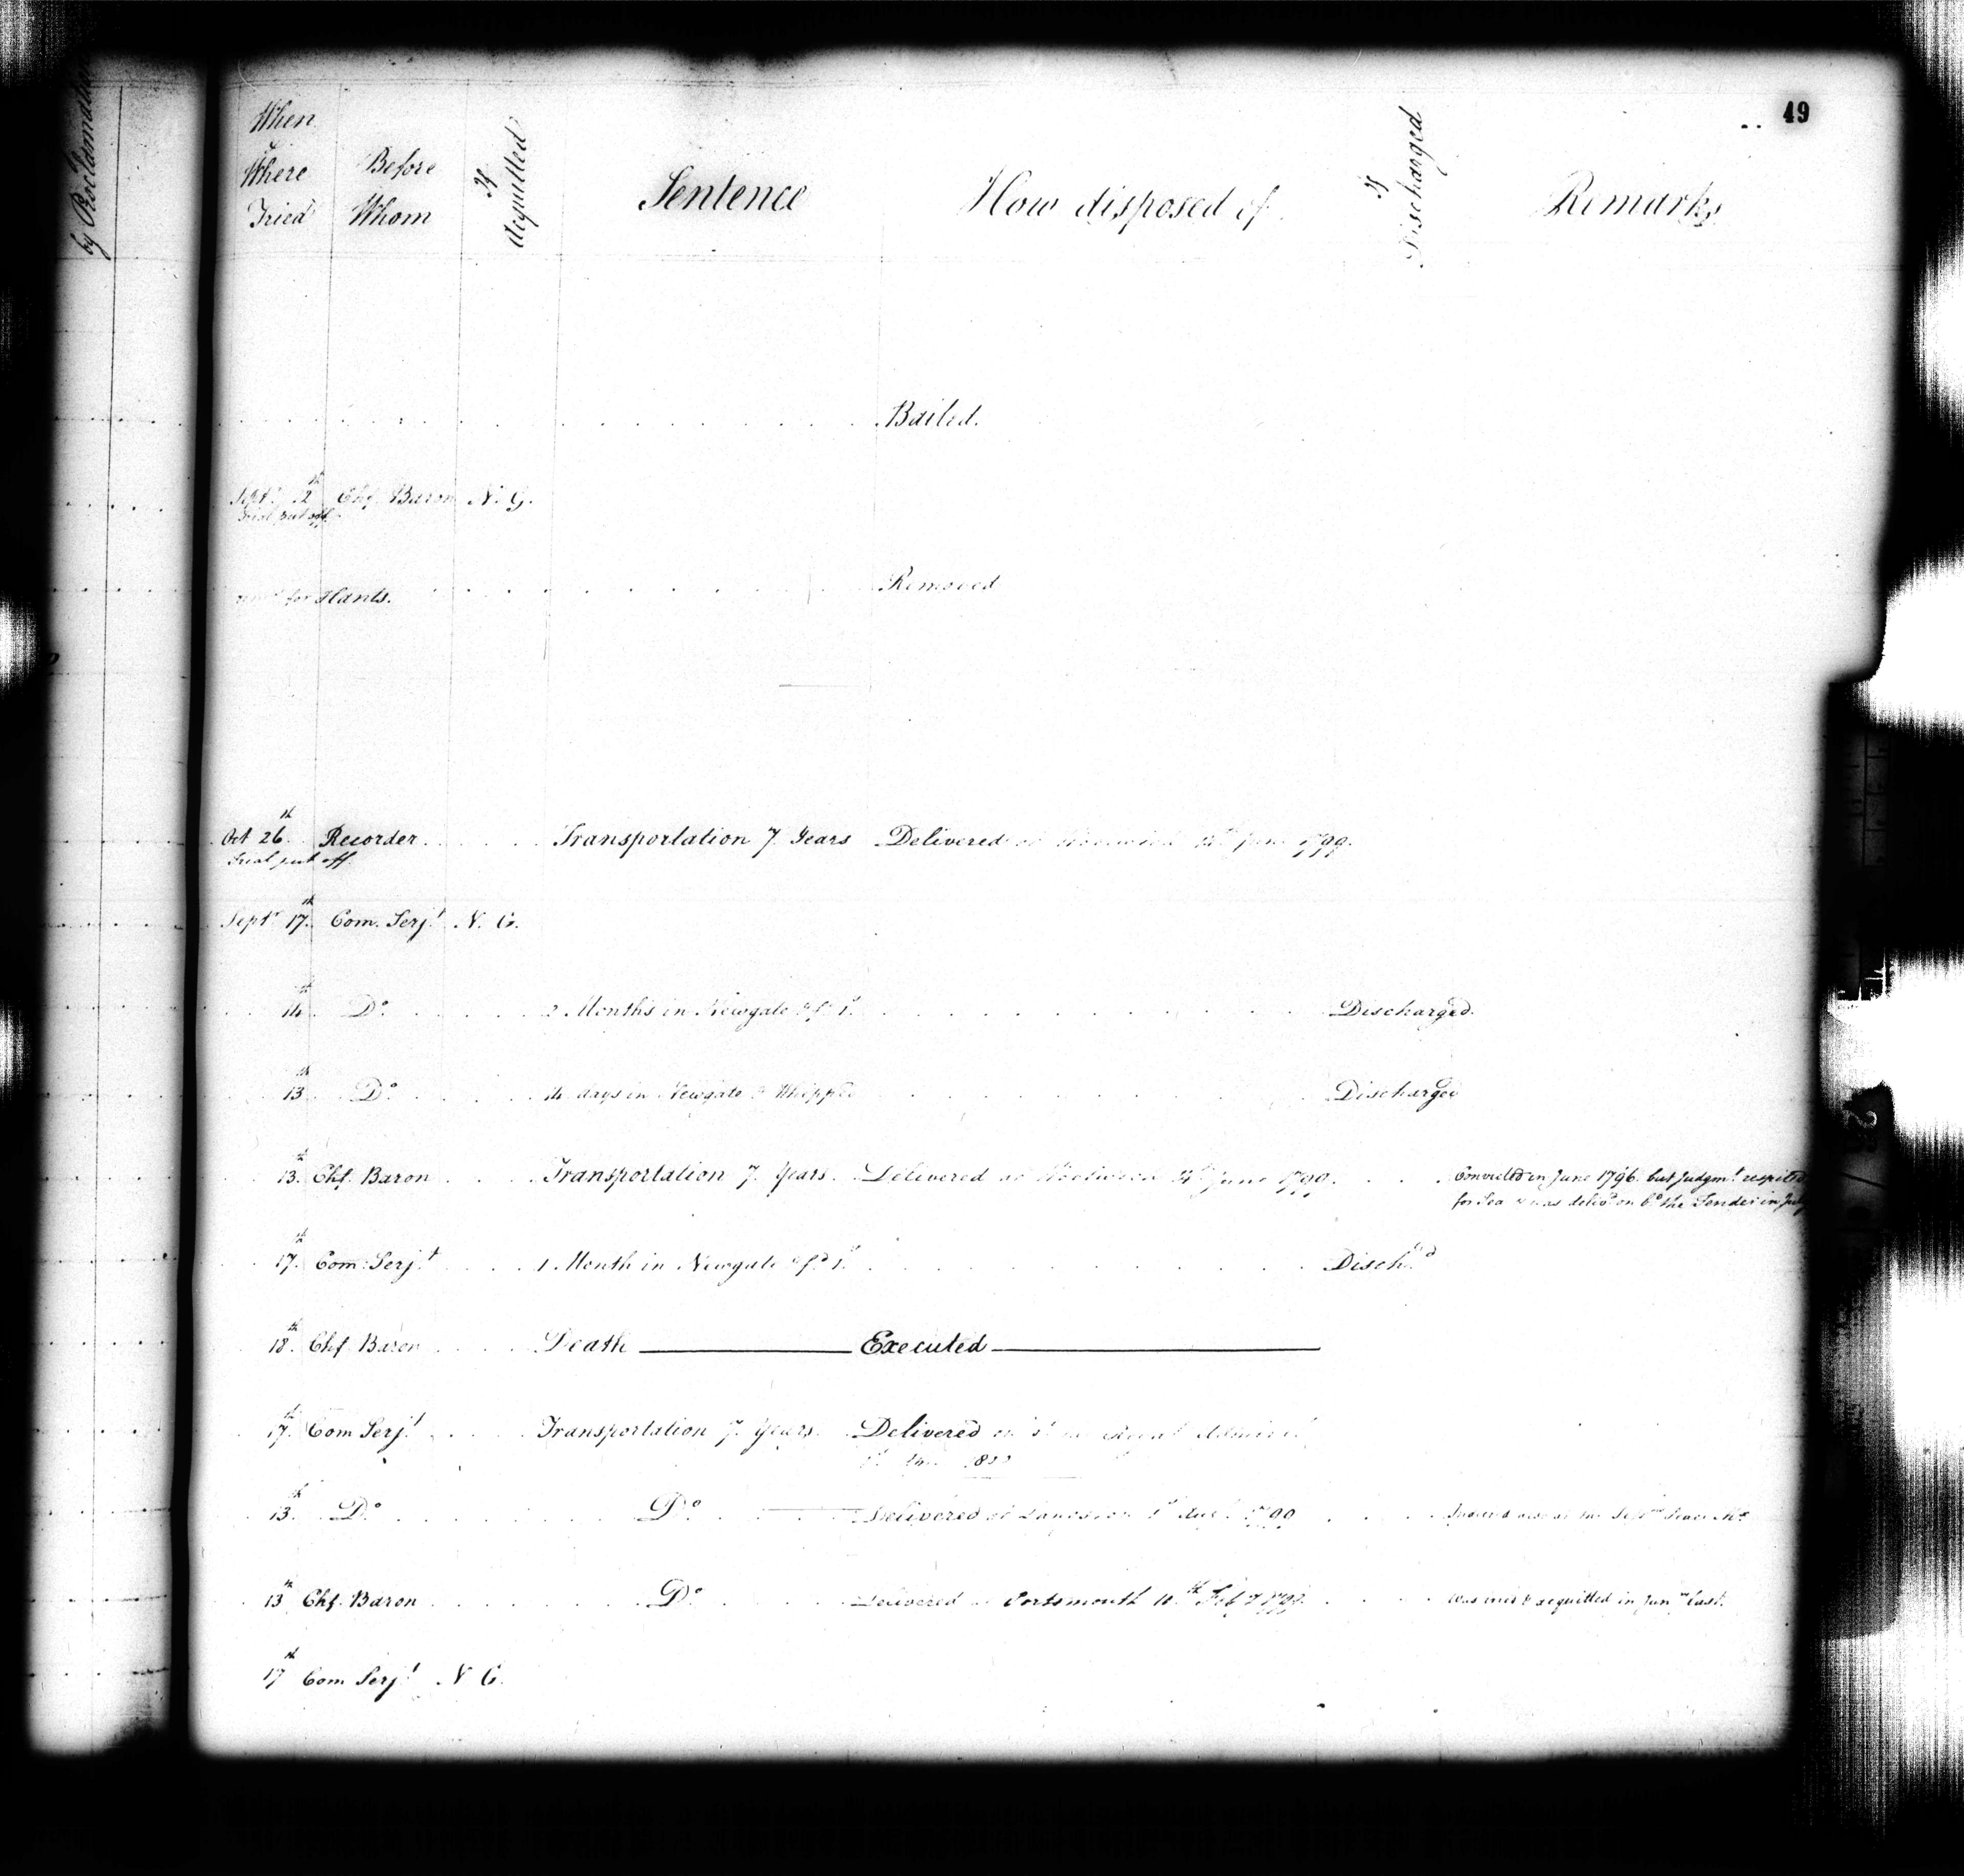 49
by Proclamation
When & Where Tried
Before Whom
If Acquitted
Sentence
How disposed of
If Discharged
Remarks
Bailed.
Septr. 12th Chf. Baron N. G.
Trial put off
for Hants. Removed
Oct 26th Recorder Transportation 7 Years Delivered at Woolwich June 1799.
Trial put off
Septr 17th Com. Serjt N. G.
14th Do 2 Months in Newgate & fd 1s Discharged.
13th Do 14 days in Newgate & Whipped Discharged
13th Chf. Baron Transportation 7 Years Delivered at Woolwich June 1799. Convicted in June 1796 but Judgmt respited
for Sea & was delivd on bd the Tender in July
17th Com. Serjt 1 Month in Newgate & fd 1s Dischgd
18th Chf Baron Death Executed
17th Com Serjt Transportation 7 Years Delivered on bd the Royal Admiral
1800
13th Do Do Delivered at Langston 1st Augt 1799
13th Chf. Baron Do Delivered at Portsmouth 10th Feby 1799. Was tried & acquitted in Jany last.
17th Com Serjt N G.